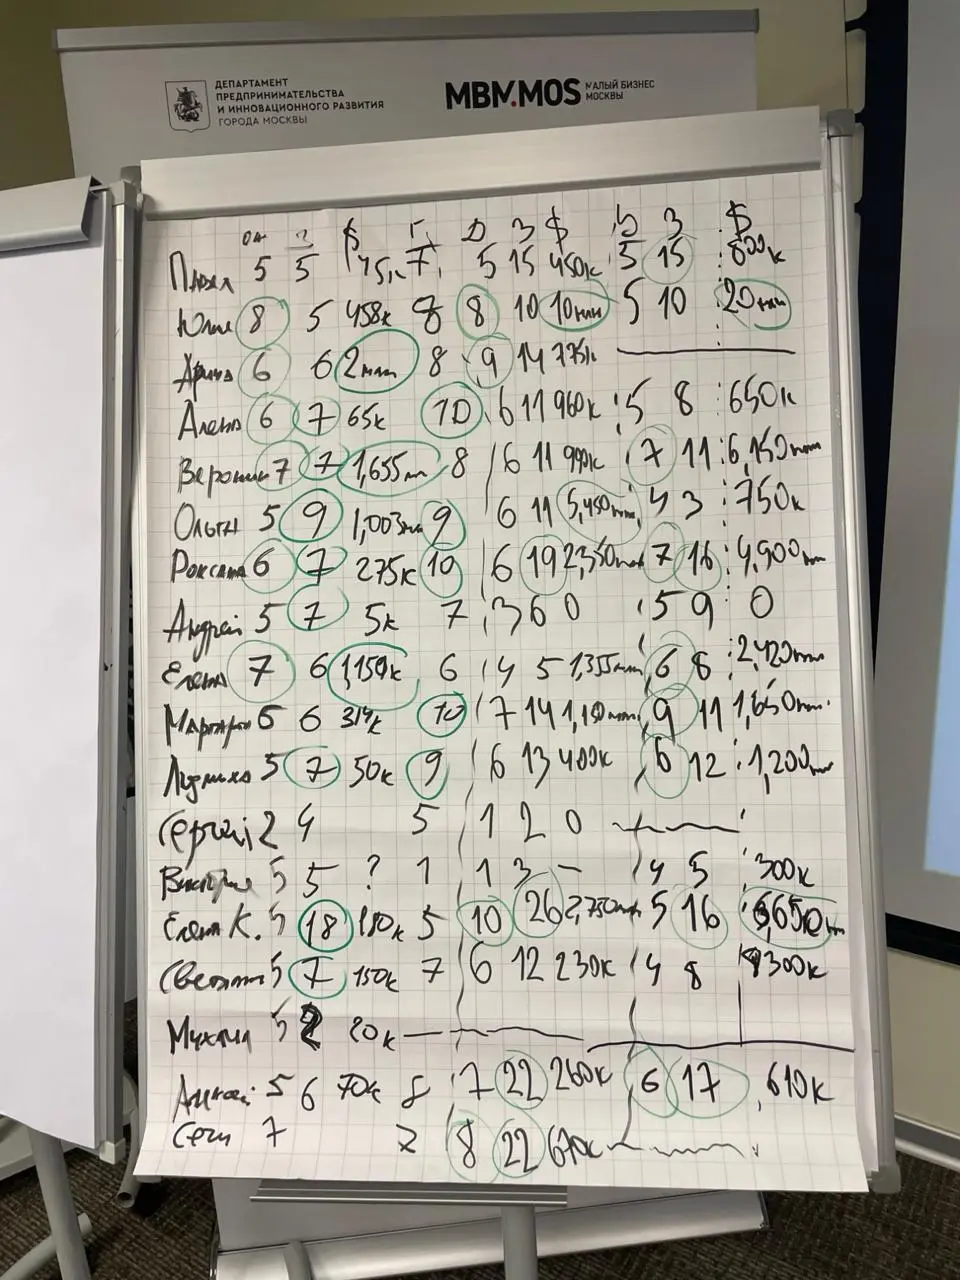 ДЕПАРТАМЕНТ
ПРЕДПРИНИМАТЕЛЬСТВА
И ИННОВАЦИОННОГО РАЗВИТИЯ
ГОРОДА МОСКВЫ
MBM.MOS
МАЛЫЙ БИЗНЕС
МОСКВЫ
$ Г D З $ Ь З $
5 5 45к 7 5 15 450к 5 15 600к
Юлия 8 5 458к 8 8 10 10млн 5 10 20млн
Арина 6 6 2млн 8 9 14 775к
Алена 6 7 65к 10 6 11 960к 5 8 650к
Вероник 7 7 1,655 8 6 11 7 11 6,150
Ольга 5 9 1,003 9 6 11 5,450 4 3 750к
Роксана 6 7 275к 10 6 19 2,350 7 16 4,900
Андрей 5 7 5к 7 3 6 0 5 9 0
Елена 7 6 1,150к 6 4 5 1,355 6 8 2,420
Маргари 5 6 314к 10 7 14 1,110 9 11 1,650
Людмила 5 7 50к 9 6 13 400к 6 12 1,200
Сергей 2 4 5 1 2 0
Виктория 5 5 ? 1 1 3 – 4 5 300к
Елена К. 5 18 180к 5 10 26 2,750 5 16
Светлан 5 7 150к 7 6 12 230к 4 8 300к
Михаил 5 2 20к
5 6 70к 8 7 22 260к 6 17 610к
7 8 22 670к